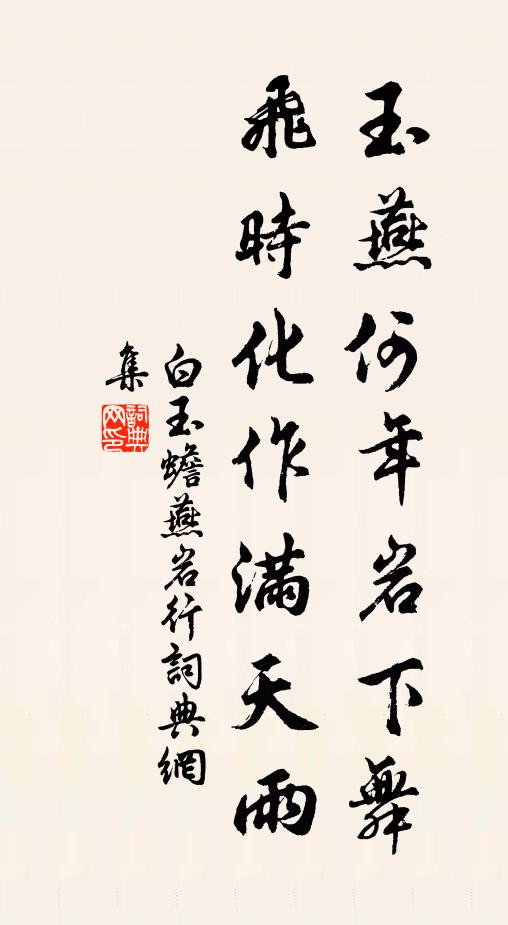 玉燕何年岩下舞
飛時化作滿天雨
白玉蟾燕岩行詞典網
集
詞典
网印